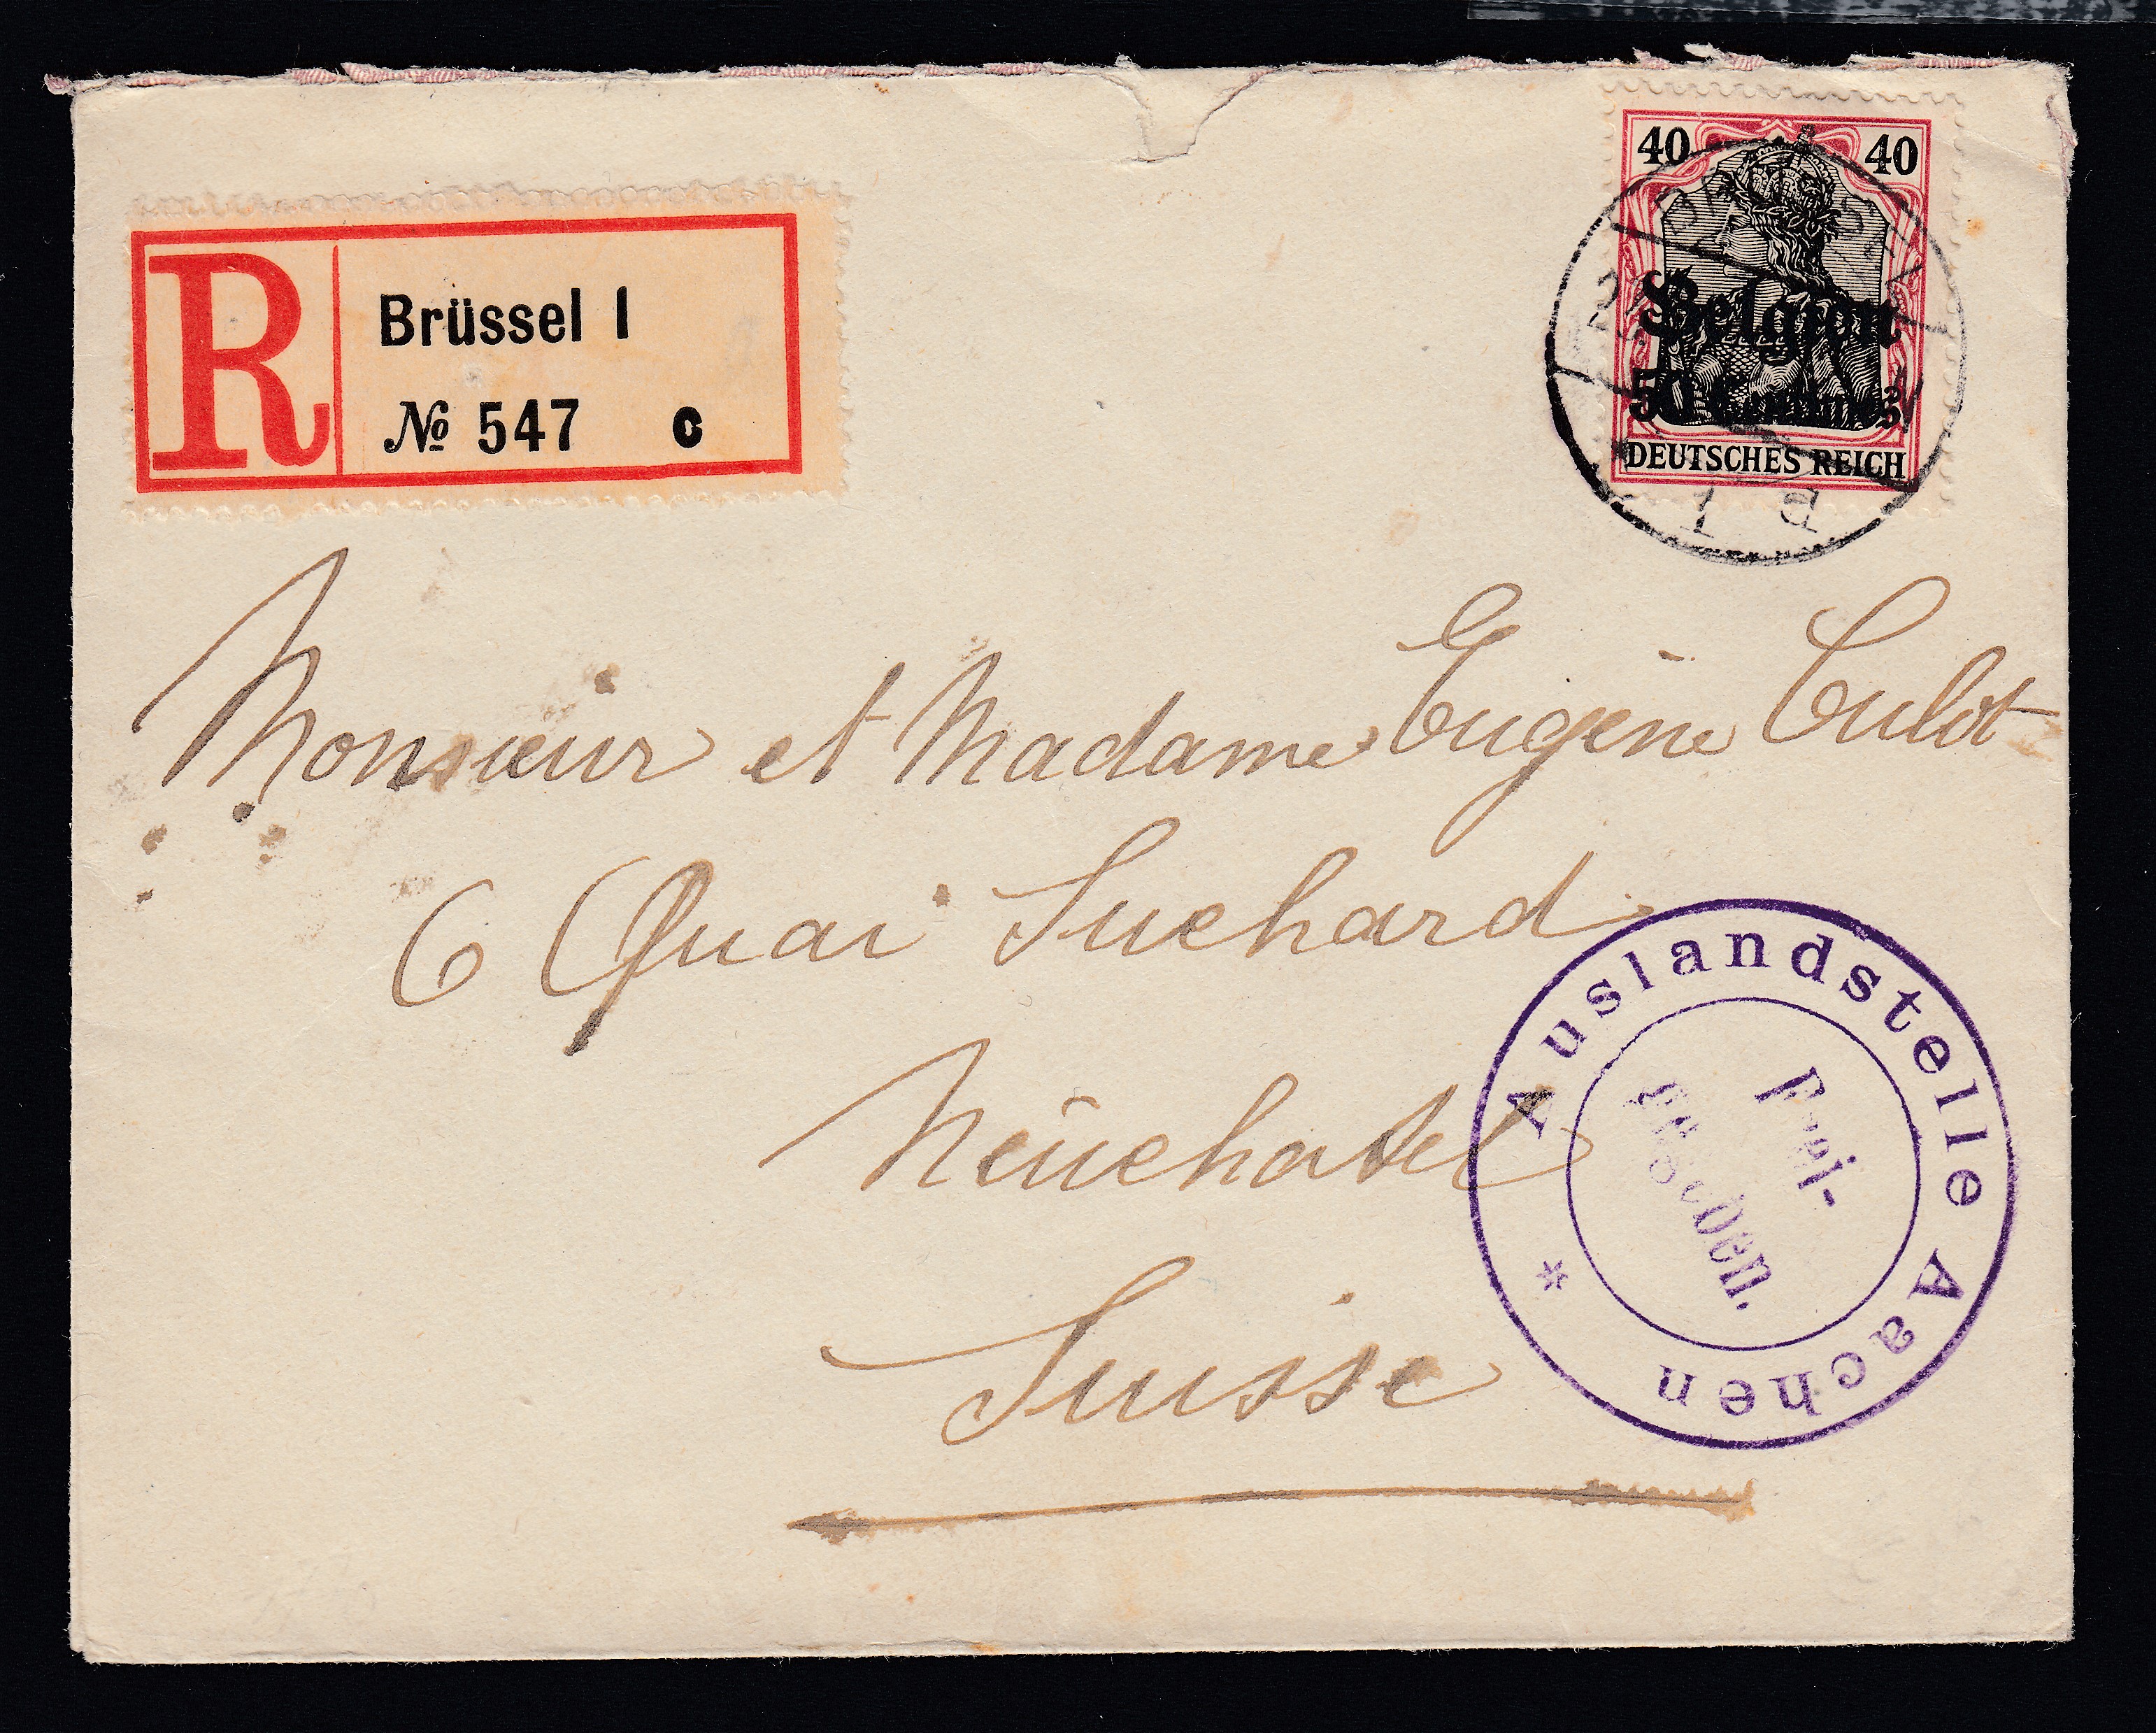 R
Brüssel 1
№ 547 c
40 40
Belgien
50 Centimes
DEUTSCHES REICH
1 a
Monsieur et Madame Eugène Culot
6 Quai Suchard
Neuchatel
Suisse
Auslandstelle Aachen *
Frei-
gegeben.